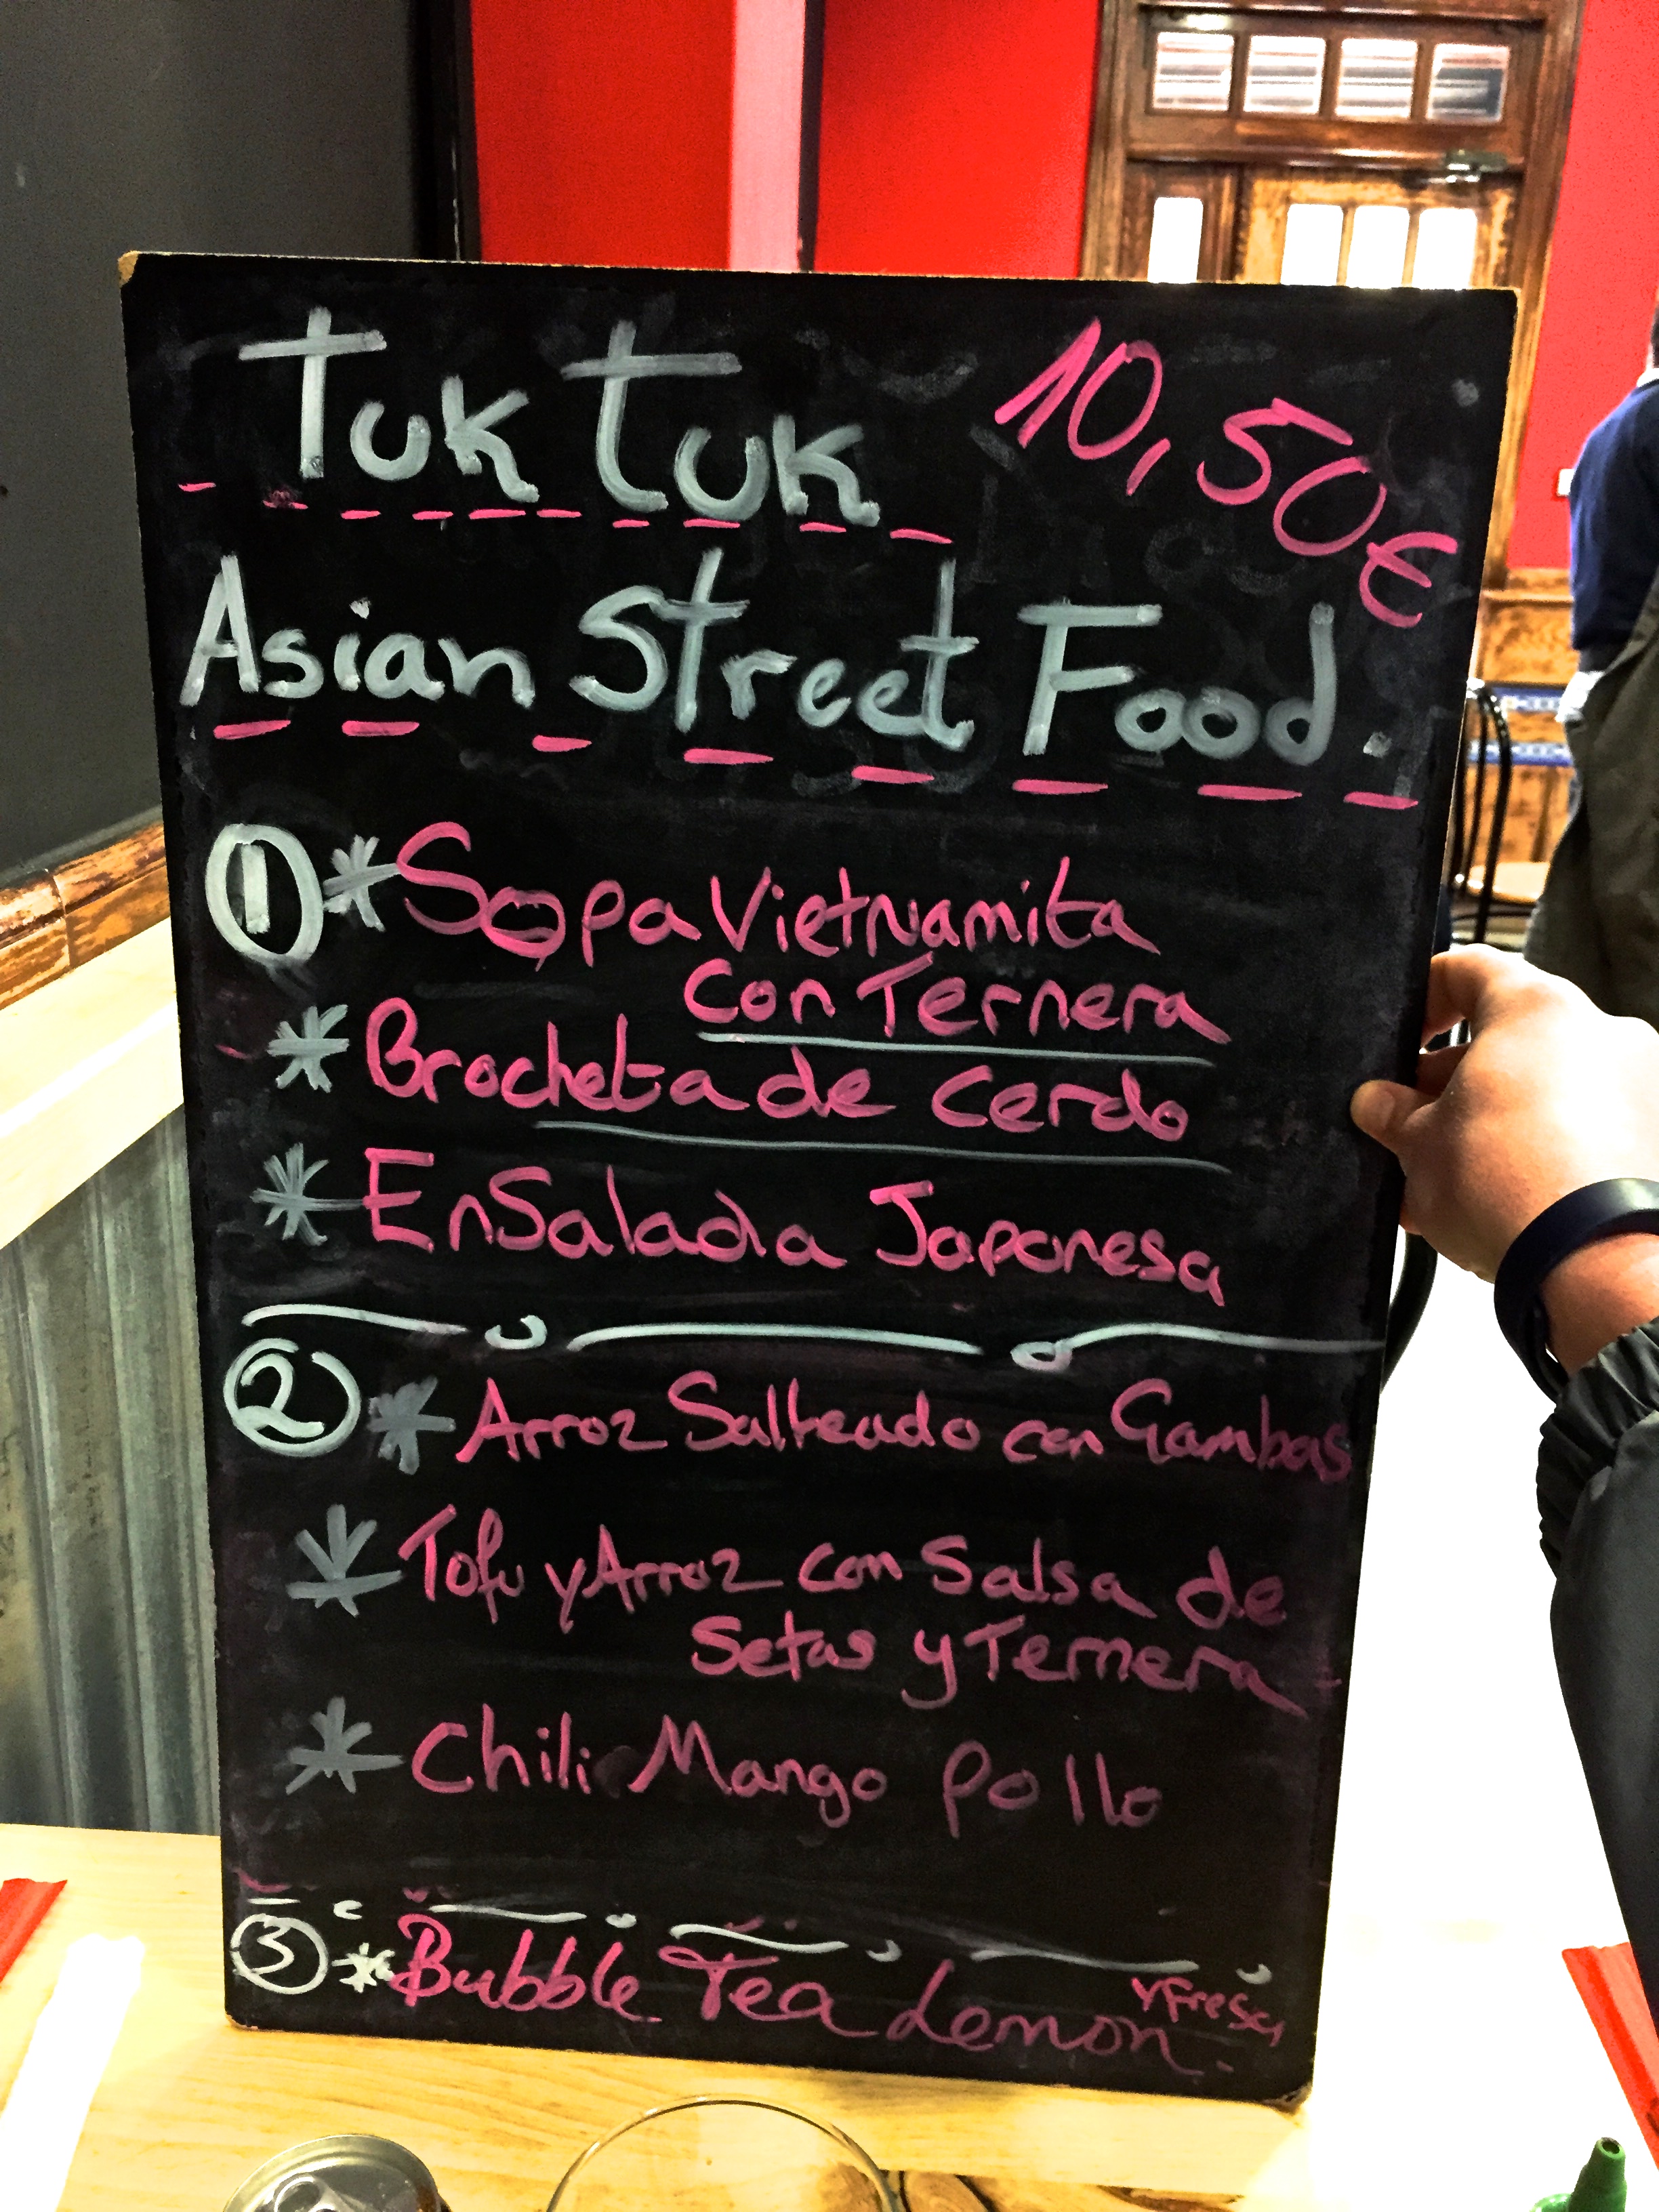 Tuk Tuk
10,50€
Asian Street Food.
1 * Sopa Vietnamita
con Ternera
* Brocheta de Cerdo
* EnSalada Japonesa
2 * Arroz Salteado con Gambas
* Tofu y Arroz con Salsa de
Setas y Ternera
* Chili Mango Pollo
3 * Bubble Tea Lemon y Fresa